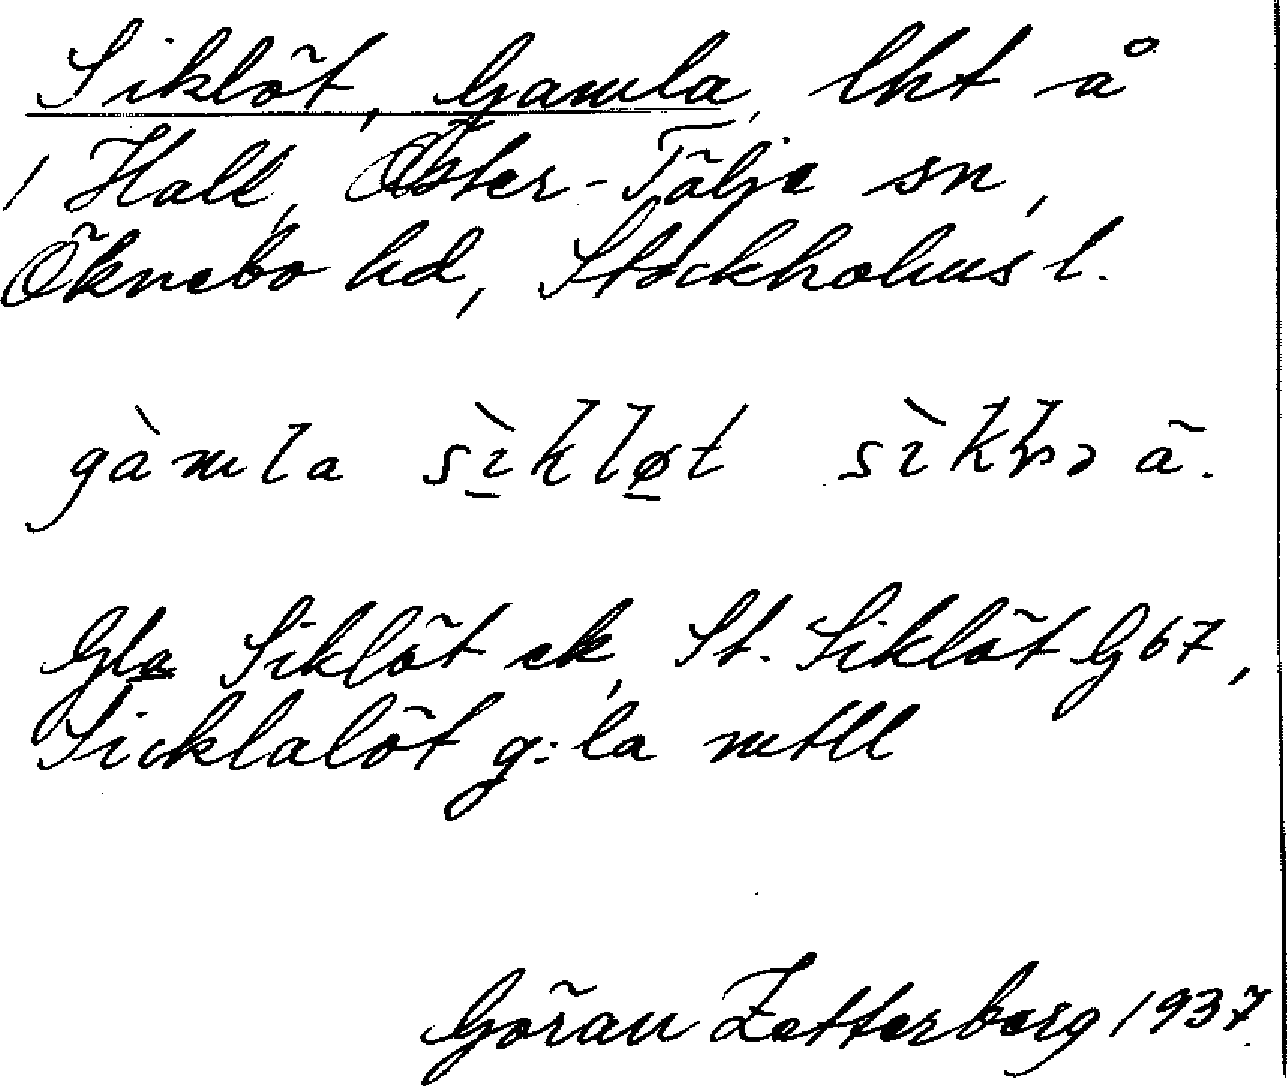 Siklöt, Gamla, lht å
1 Hall, Öster-Tälje sn,
Öknebo hd, Stockholms l.
gàmla sìkløt
Gla Siklöt ek, St. Siklöt G67,
Sicklalöt g:la mtll
Göran Zetterberg 1937.